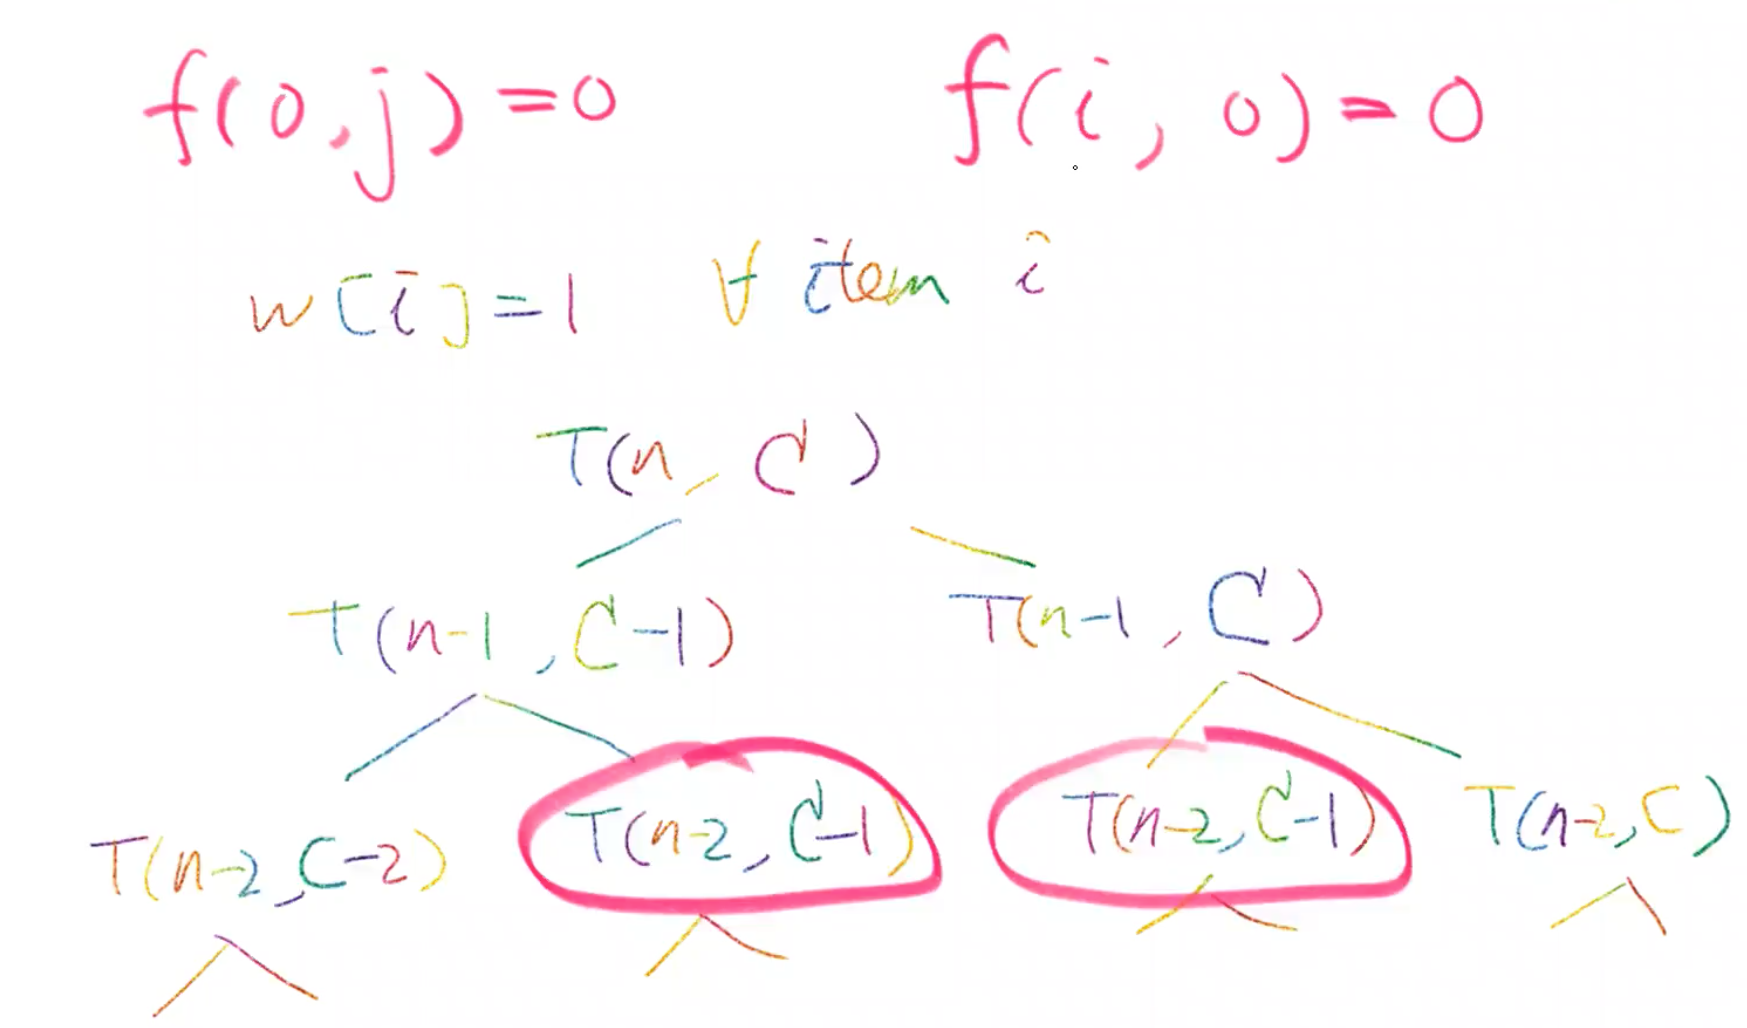 f(0,j)=0 f(i,0)=0
w[i]=1 ∀ item i
T(n,C)
T(n-1,C-1) T(n-1,C)
T(n-2,C-2) T(n-2,C-1) T(n-2,C-1) T(n-2,C)